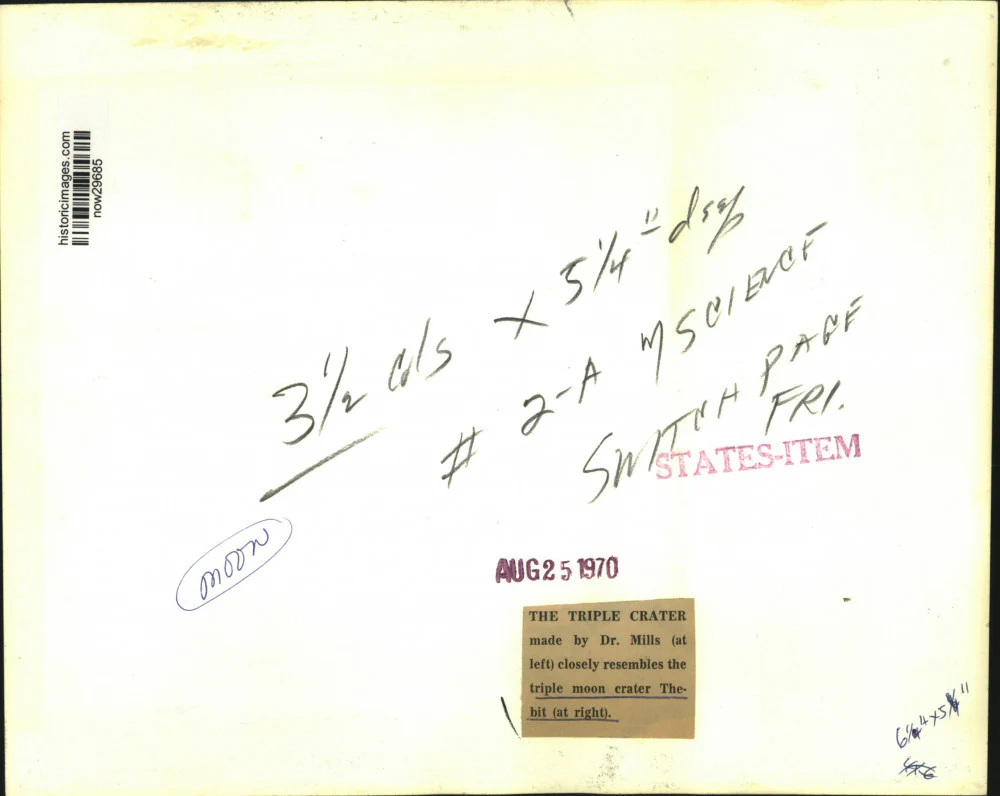 historicimages.com
now29685
3 1/2 cols x 5 1/4" dsq
# 2-A W SCIENCE
SWITCH PAGE
FRI.
STATES-ITEM
moon
AUG 25 1970
THE TRIPLE CRATER
made by Dr. Mills (at
left) closely resembles the
triple moon crater The-
bit (at right).